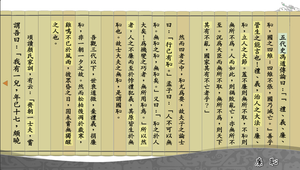 五代史馮道傳論曰：「『禮、義、廉、
恥，國之四維；四維不張，國乃滅亡。』善乎
管生之能言也！禮、義，治人之大法；廉、
恥，立人之大節。蓋不廉則無所不取，不恥則
無所不為。人而如此，則禍敗亂亡，亦無所
不至；況為大臣而無所不取，無所不為，則天下
其有不亂，國家其有不亡者乎？」
然而四者之中，恥尤為要，故夫子之論士
曰：「行己有恥。」孟子曰：「人不可以無
恥。無恥之恥，無恥矣。」又曰：「恥之於人
大矣！為機變之巧者，無所用恥焉。」所以然
者，人之不廉而至於悖禮犯義，其原皆生於無
恥也。故士大夫之無恥，是謂國恥。
吾觀三代以下，世衰道微，棄禮義，捐廉
恥，非一朝一夕之故。然而松柏後凋於歲寒，
雞鳴不已於風雨，彼昏之日，固未嘗無獨醒
之人也。
頃讀顏氏家訓，有云：「齊朝一士夫，嘗
謂吾曰：『我有一兒，年已十七，頗曉
廉恥